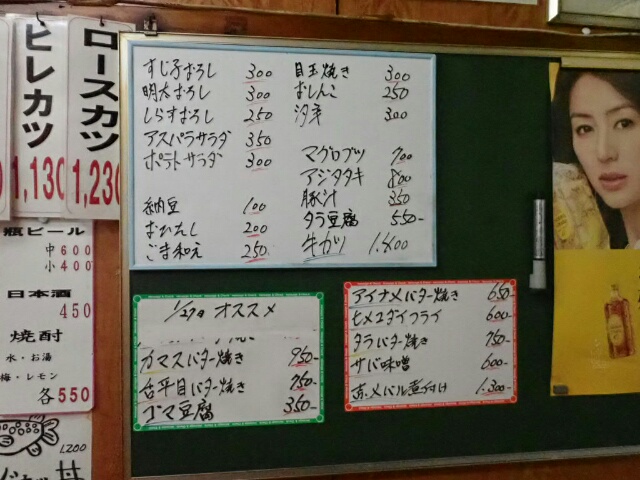 ヒレカツ
1,130
ロースカツ
1,230
瓶ビール
中 600
小 400
日本酒
450
焼酎
水・お湯
梅・レモン
各 550
1,200
丼
すじ子おろし 300
明太おろし 300
しらすおろし 250
アスパラサラダ 350
ポテトサラダ 300
納豆 100
おひたし 200
ごま和え 250
目玉焼き 300
おしんこ 250
300
マグロブツ 700
アジタタキ 800
豚汁 350
タラ豆腐 550-
牛カツ 1,800
1/27日 オススメ
カマスバター焼き 950-
舌平目バター焼き 750-
ゴマ豆腐 350-
アイナメバター焼き 650-
ヒメコダイフライ 600-
タラバター焼き 750-
サバ味噌 600-
赤メバル煮付け 1,300-